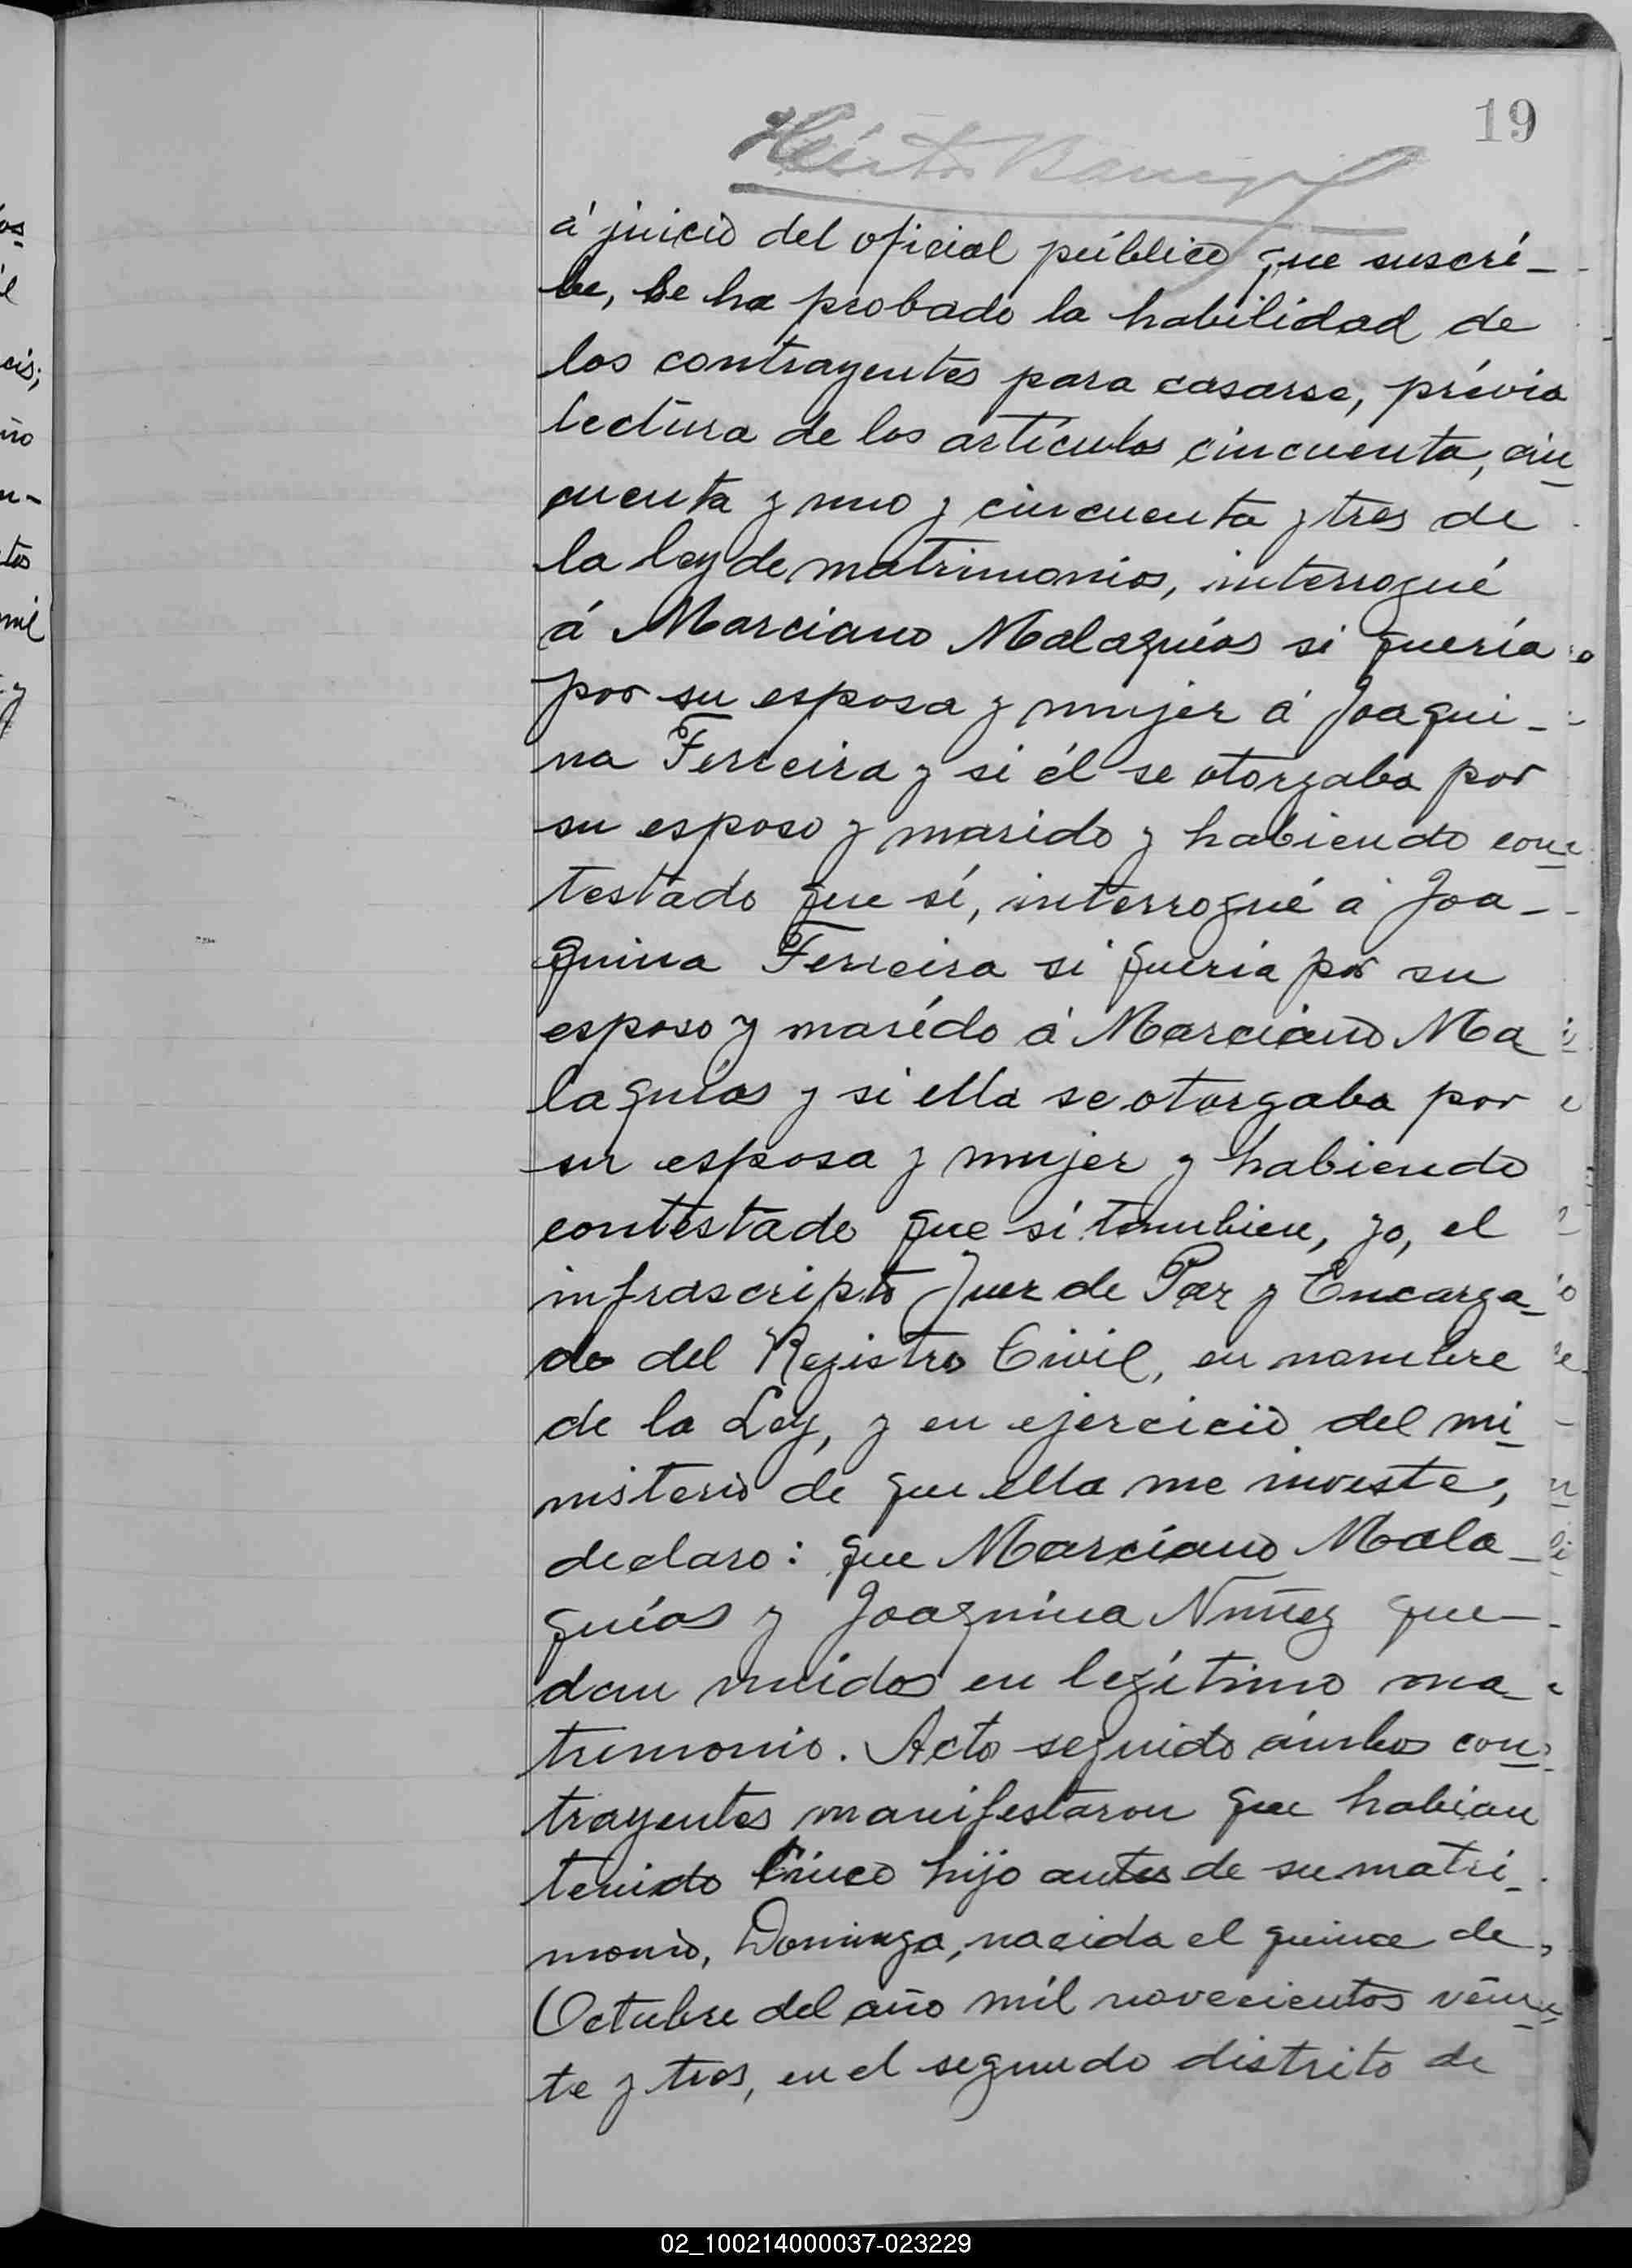 19
á juicio del oficial público que suscri-
be, se ha probado la habilidad de
los contrayentes para casarse, prévia
lectura de los artículos cincuenta, cin
cuenta y uno y cincuenta y tres de
la ley de matrimonios, interrogué
á Marciano Malaquías si quería
por su esposa y mujer á Joaqui-
na Ferreira y si él se otorgaba por
su esposo y marido y habiendo con
testado que sí, interrogué á Joa-
quina Ferreira si quería por su
esposo y marido á Marciano Ma
laquías y si ella se otorgaba por
su esposa y mujer y habiendo
contestado que sí tambien, yo, el
infrascripto Juez de Paz y Encarga-
do del Registro Civil, en nombre
de la Ley, y en ejercicio del mi
nisterio de que ella me investe,
declaro: que Marciano Mala-
quías y Joaquina Nuñez que-
dan unidos en legítimo ma-
trimonio. Acto seguido ámbos con
trayentes manifestaron que habian
tenido hijo antes de su matri-
monio, Dominga, nacida el quince de
Octubre del año mil novecientos vein
te y tres, en el segundo distrito de
02_100214000037-023229